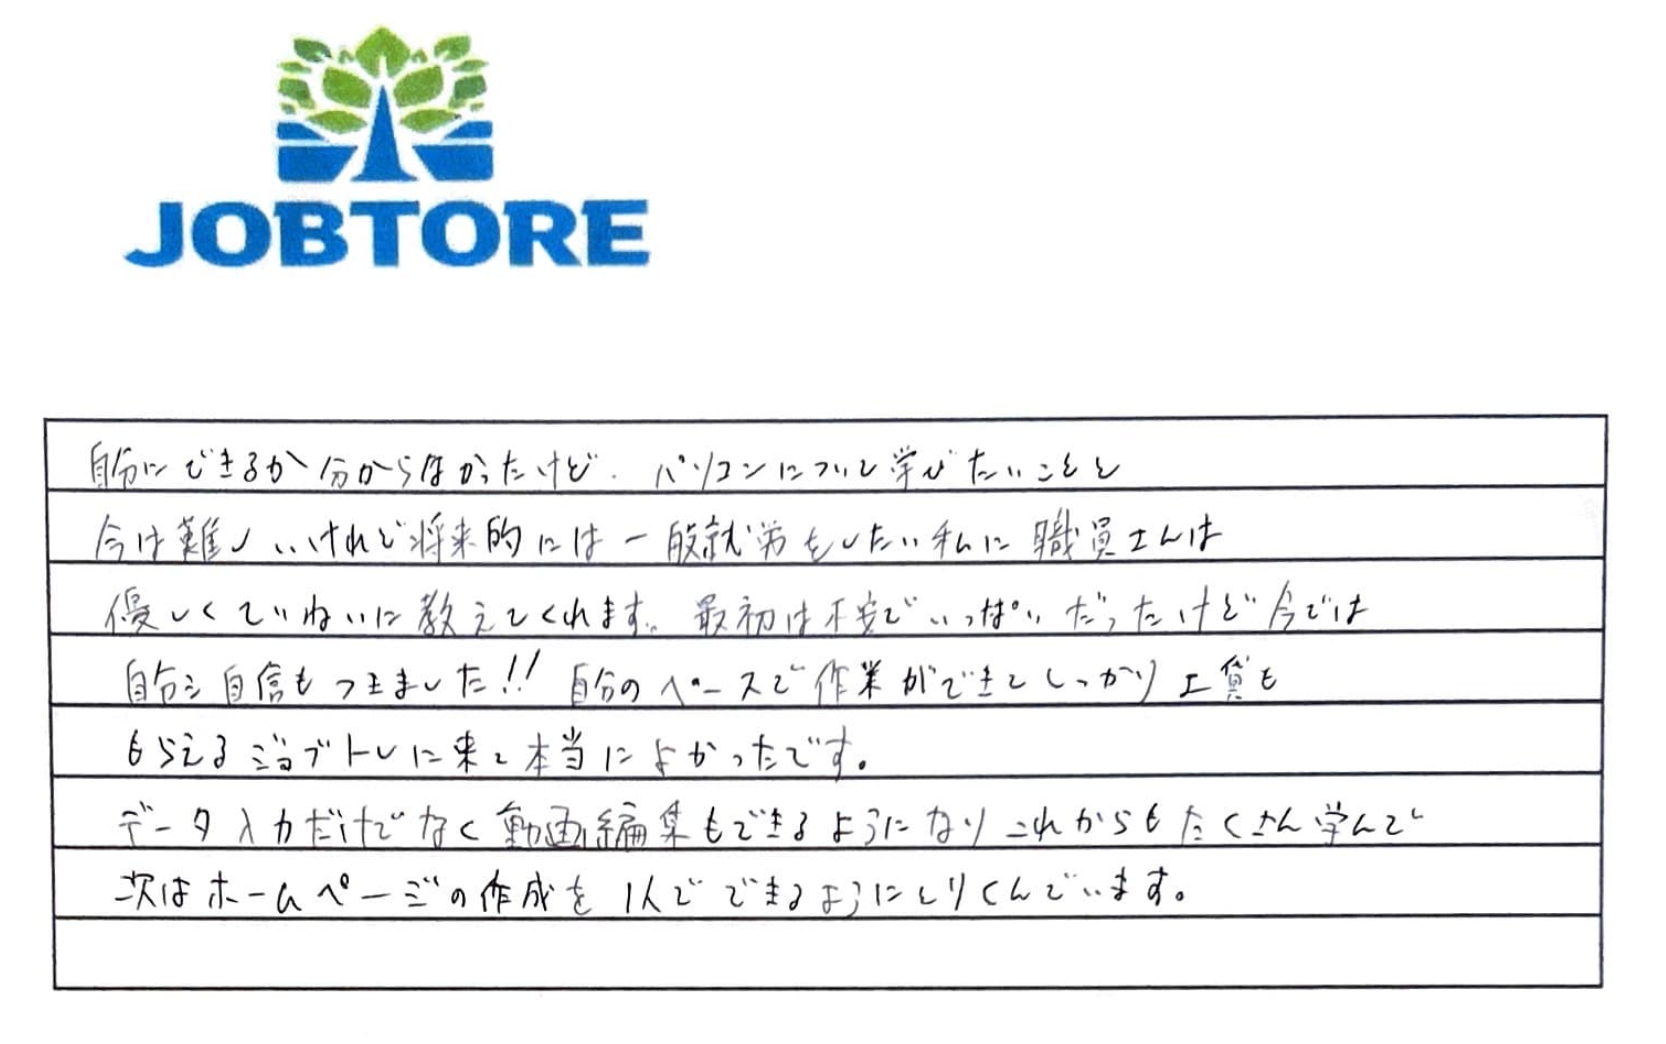 JOBTORE
自分にできるか分からなかったけど、パソコンについて学びたいことと
今は難しいけれど将来的には一般就労をしたい私に職員さんは
優しくていねいに教えてくれます。最初は不安でいっぱいだったけど今では
自分に自信もつきました!! 自分のペースで作業ができてしっかり工賃も
もらえるジョブトレに来て本当によかったです。
データ入力だけでなく動画編集もできるようになりこれからもたくさん学んで
次はホームページの作成を1人でできるようにとりくんでいます。